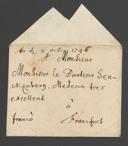 A Monsieur
Monsieur le Docteur Sen-
Kenberg, Médecin tres
excellent
à
francò Francfort